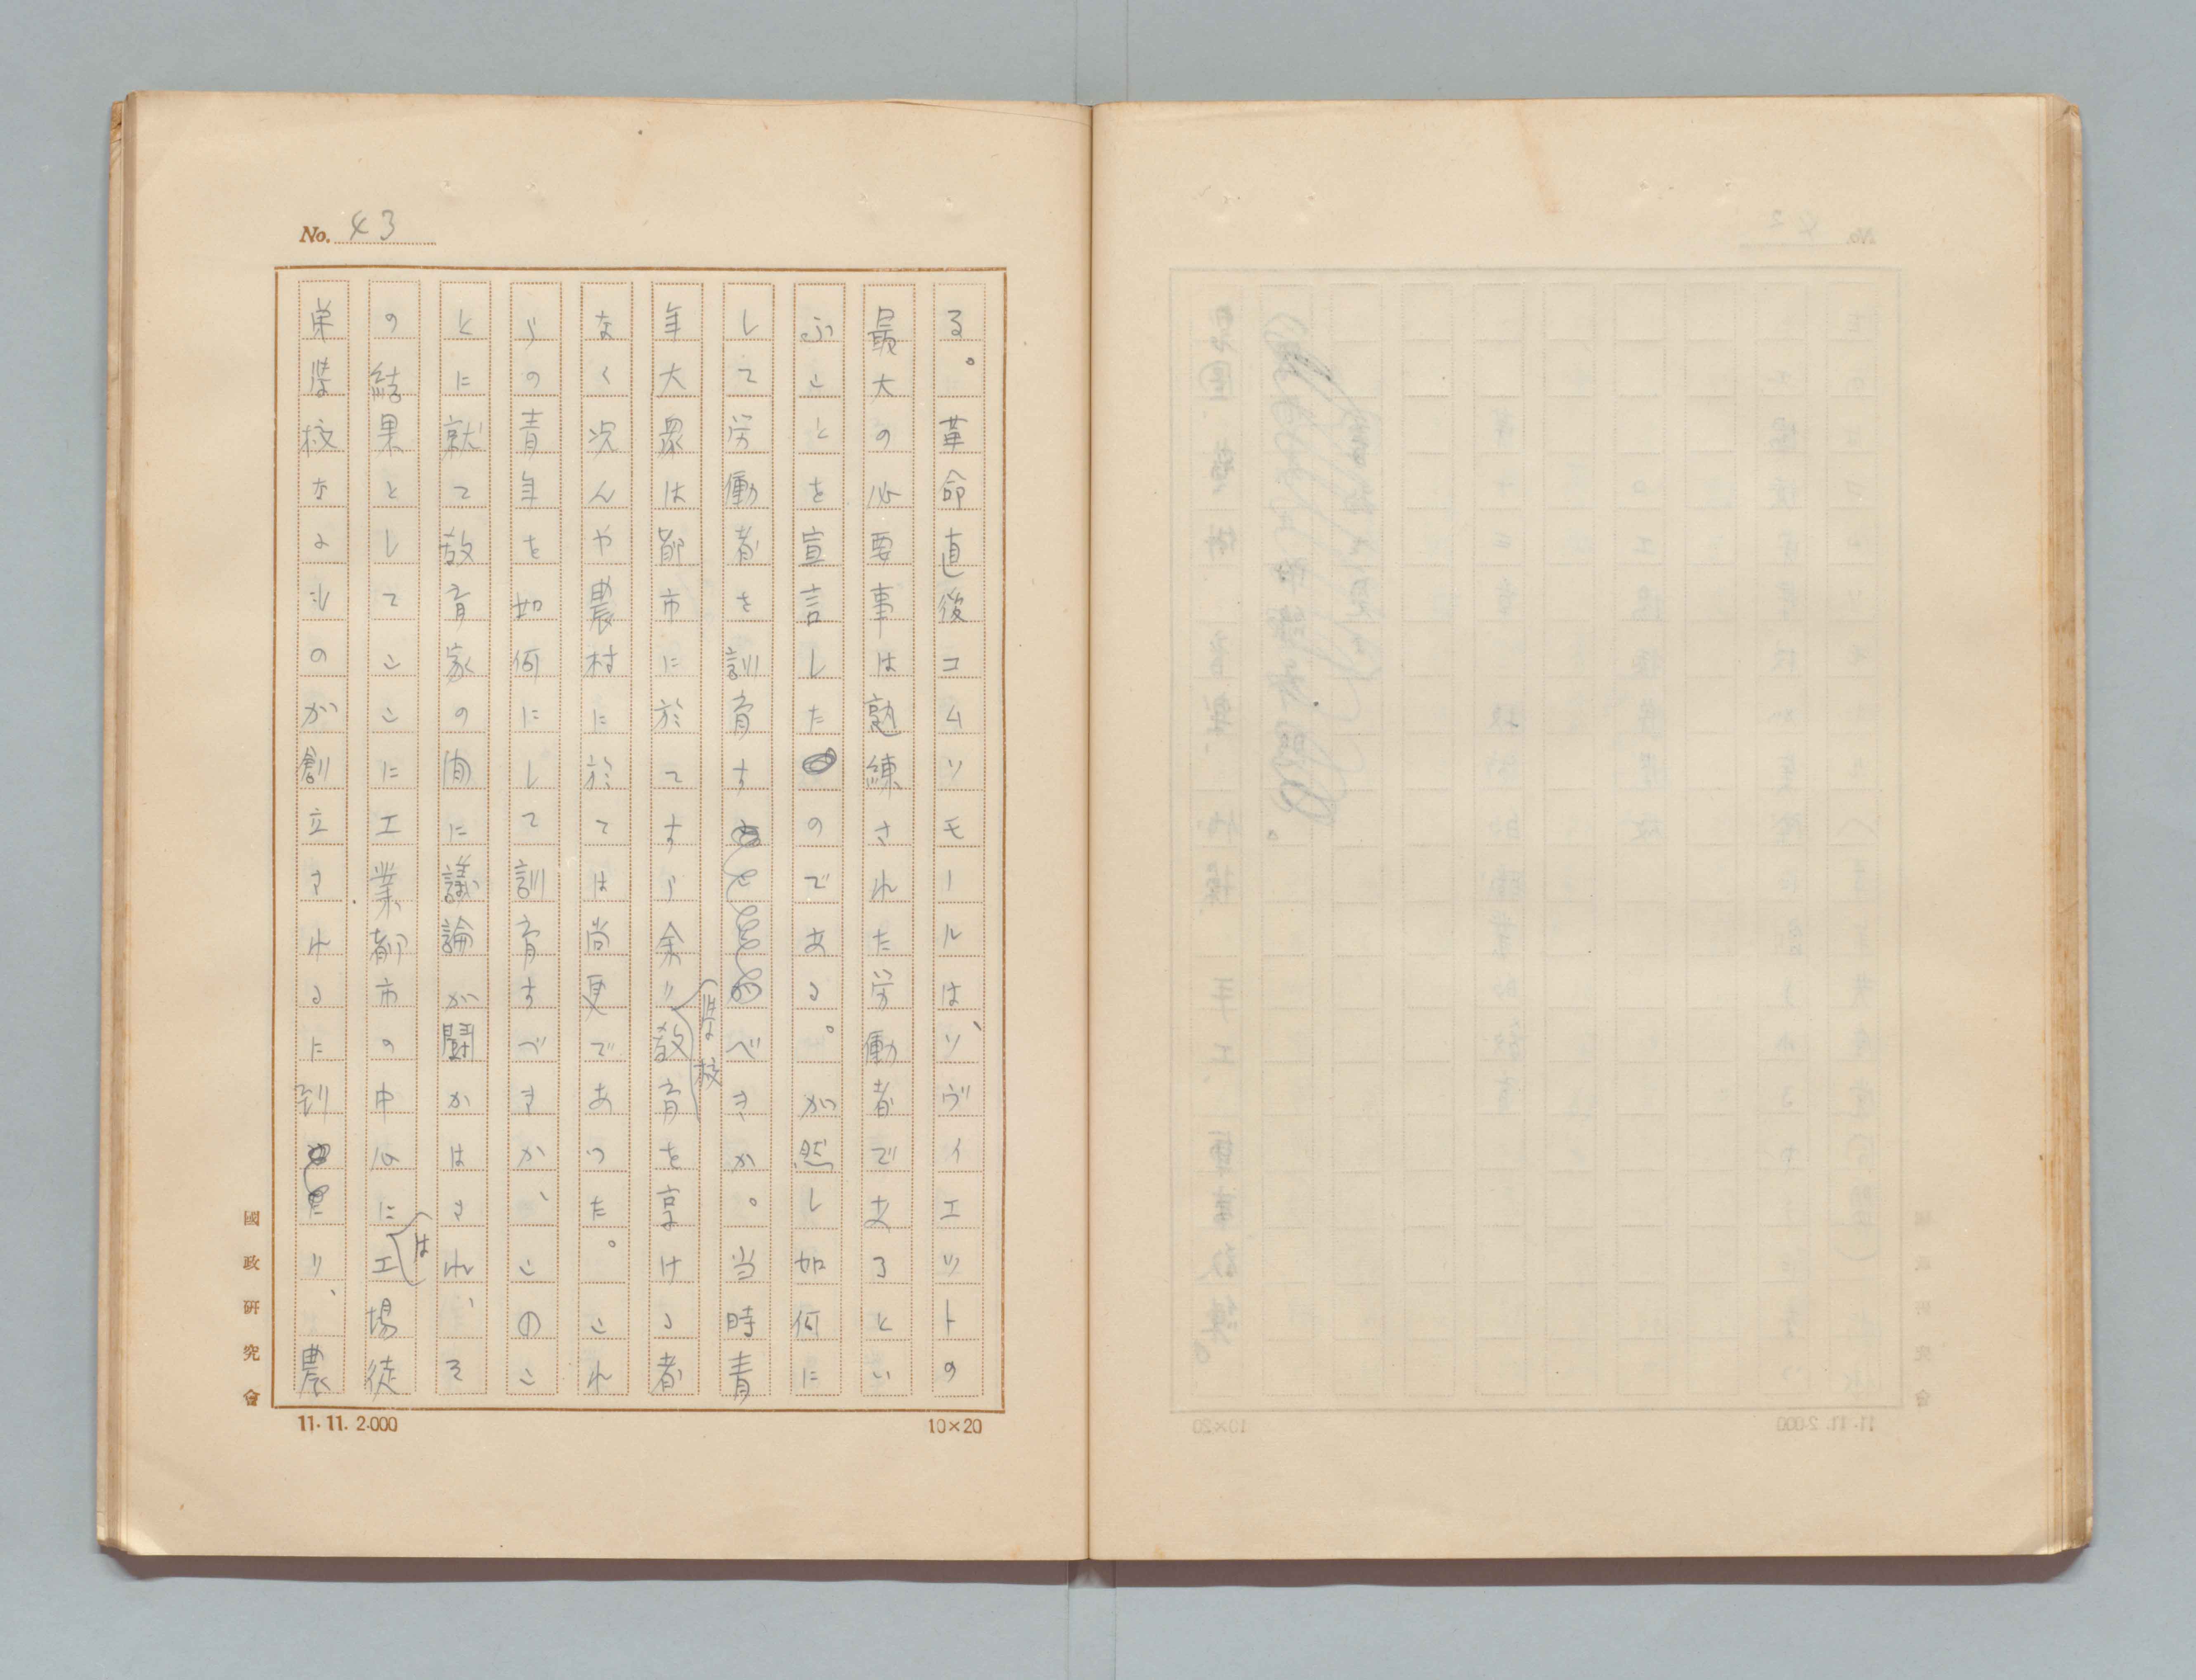 No. 43
る。革命直後コムソモールは、ソヴイエツトの
最大の必要事は熟練された労働者であるとい
ふことを宣言したのである。が然し如何に
して労働者を訓育すべきか。当時青
年大衆は都市に於てすら余り学校教育を享ける者
なく況んや農村に於ては尚更であつた。これ
らの青年を如何にして訓育すべきか、このこ
とに就て教育家の間に議論が闘かはされ、そ
の結果としてここに工業都市の中心には工場徒
弟学校なるものが創立されるに到り、農
國政研究會
11.11.2.000
10×20